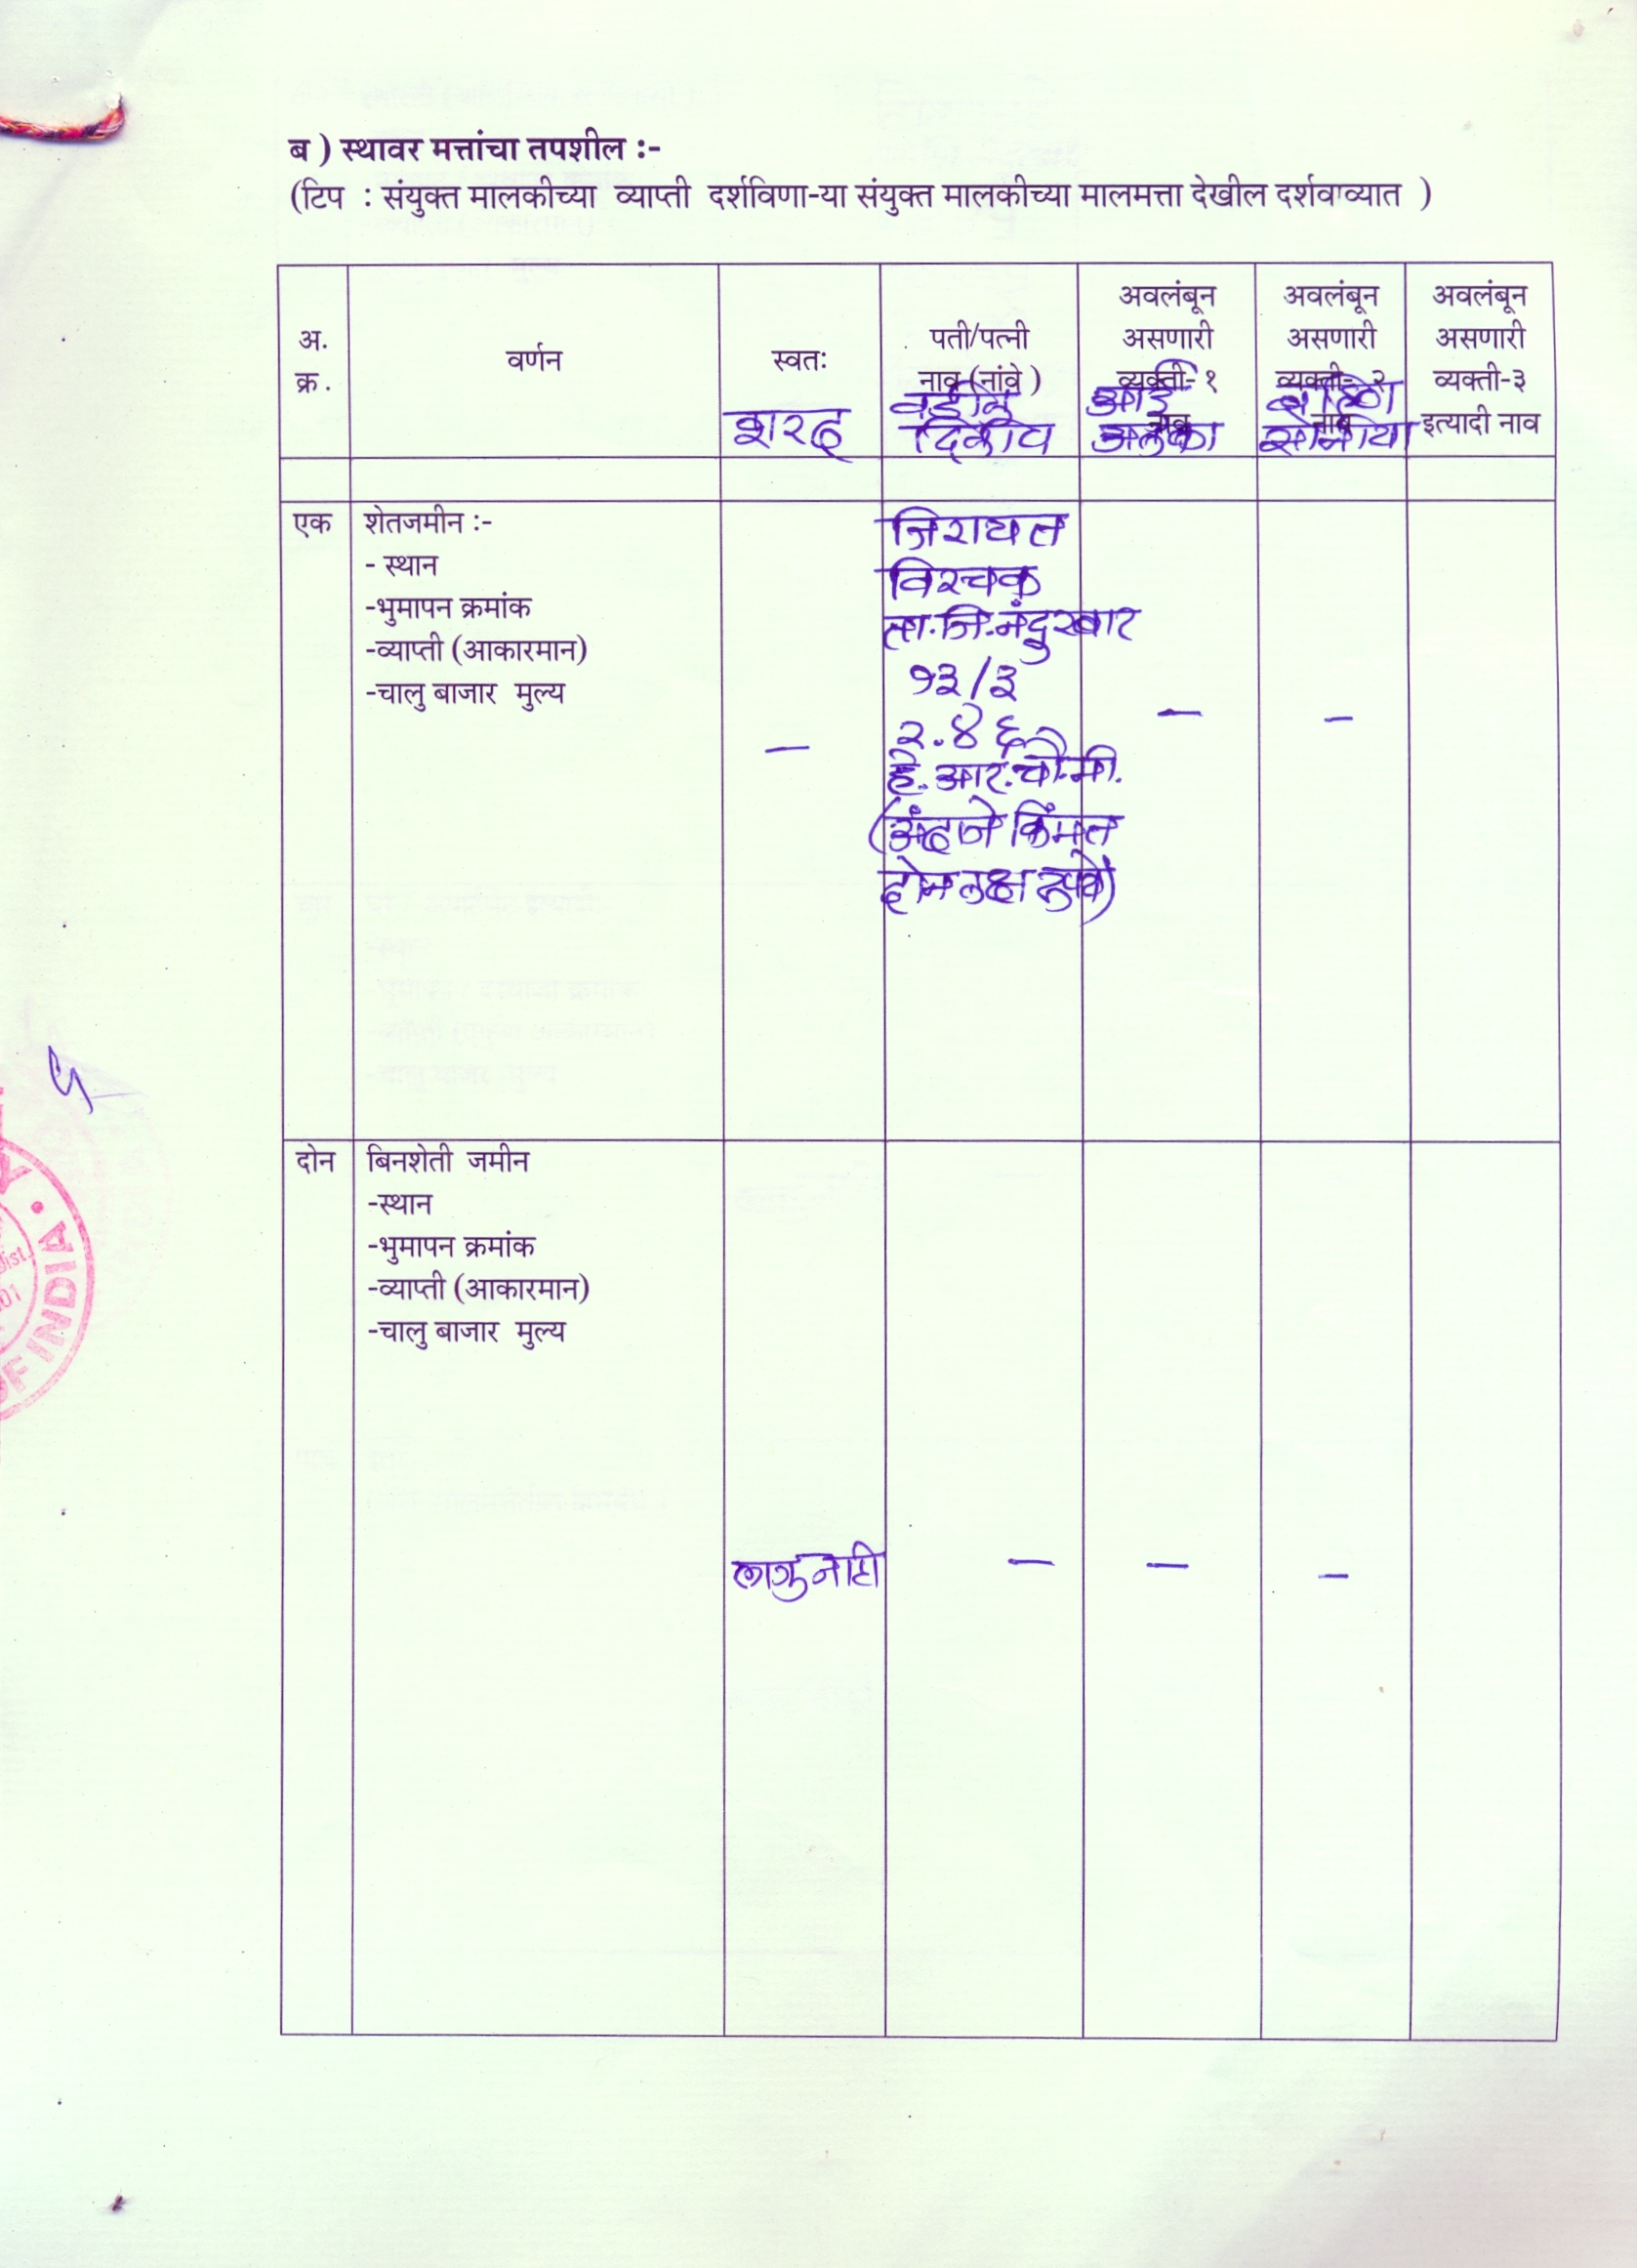 ब ) स्थावर मत्तांचा तपशील :-
(टिप : संयुक्त मालकीच्या व्याप्ती दर्शविणा-या संयुक्त मालकीच्या मालमत्ता देखील दर्शवाव्यात )
अ. क्र.
वर्णन
स्वतः
शरद
पती/पत्नी
नाव (नांवे )
वडील
दिलीप
अवलंबून
असणारी
व्यक्ती-१
नाव
आई
अलका
अवलंबून
असणारी
व्यक्ती- २
नाव
बहिण
अवलंबून
असणारी
व्यक्ती-३
इत्यादी नाव
एक
शेतजमीन :-
- स्थान
-भुमापन क्रमांक
-व्याप्ती (आकारमान)
-चालु बाजार मुल्य
—
जिरायत
विरचक
ता.जि.नंदुरबार
१३/३
२.४६
हे. आर. चौ.मी.
(अंदाजे किंमत
दोन लक्ष रूपये)
—
—
दोन
बिनशेती जमीन
-स्थान
-भुमापन क्रमांक
-व्याप्ती (आकारमान)
-चालु बाजार मुल्य
लागु नाही — — —
५
INDIA